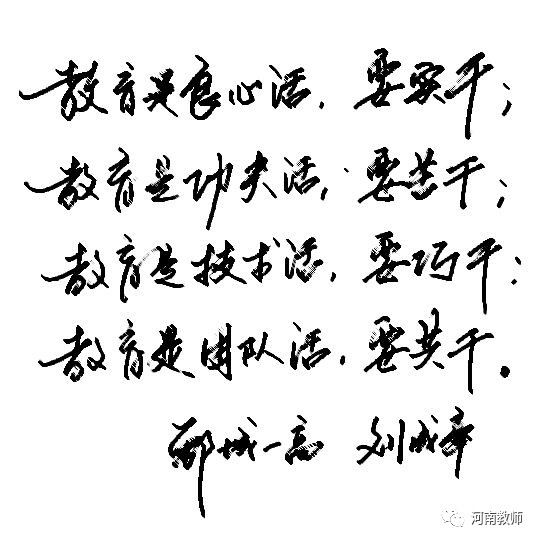 教育是良心活，要实干；
教育是功夫活，要苦干；
教育是技术活，要巧干；
教育是团队活，要共干。
郸城一高 刘成章
河南教师